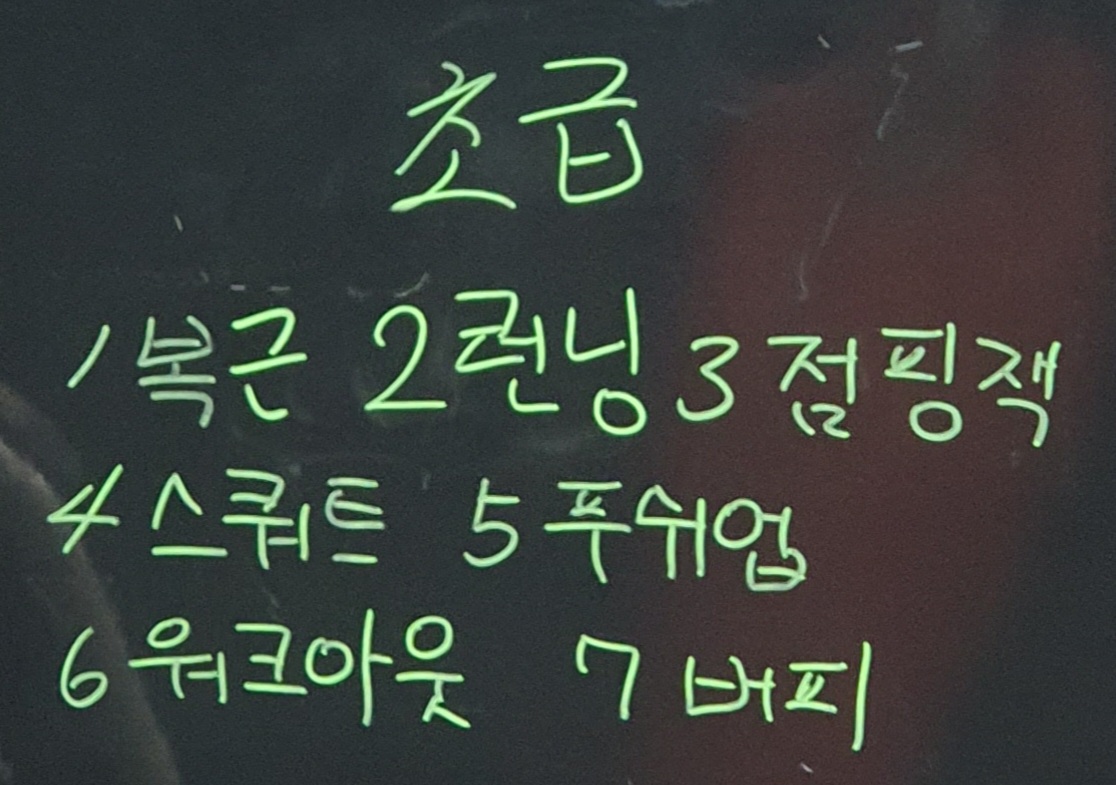 초급
1 복근 2 런닝 3 점핑잭
4 스쿼트 5 푸쉬업
6 워크아웃 7 버피